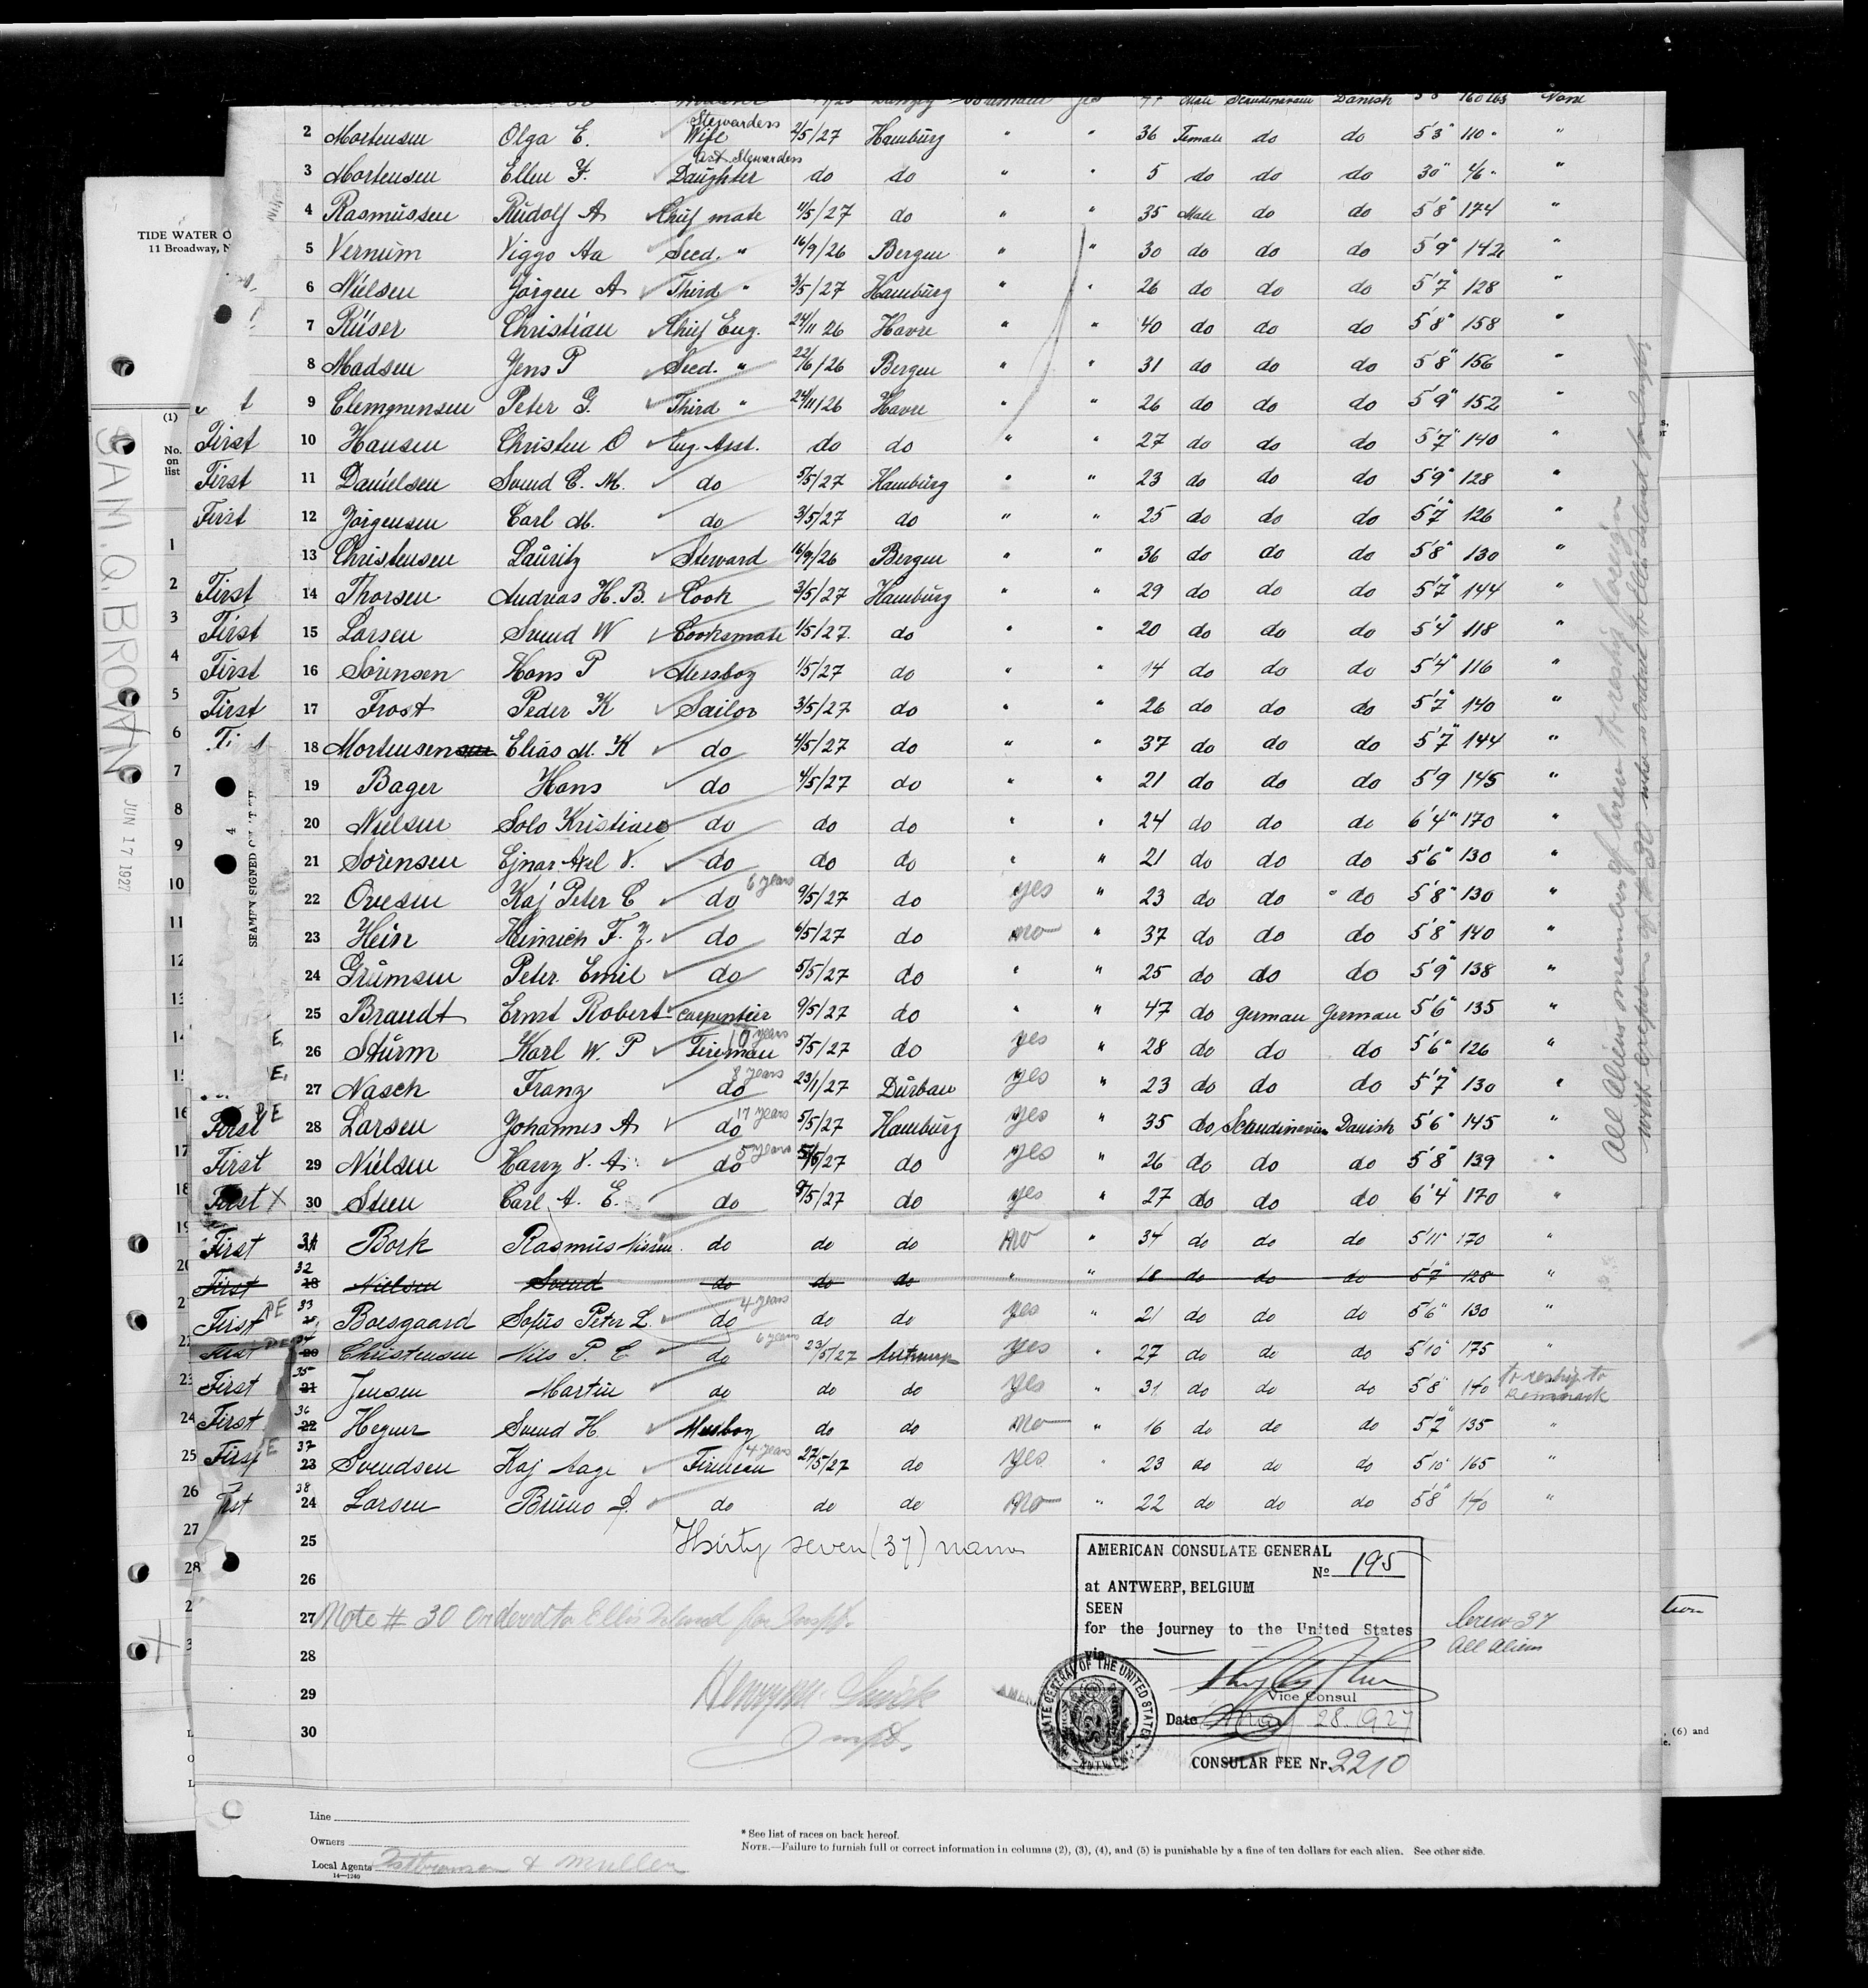 Male Scandinavian Danish 5'8" 160 lbs None
2 Mortensen Olga E. Stewardess Wife 2/5/27 Hamburg " " 36 Female do do 5'3" 110 " "
3 Mortensen Ellen Asst Stewardess Daughter do do " " 5 do do do 30" "
4 Rasmussen Rudolf A Chief mate 4/5/27 do " " 35 Male do do 5'8" 174 "
TIDE WATER O
11 Broadway, N
5 Vernum Viggo Aa Secd. " 16/9/26 Bergen " " 30 do do do 5'9" 142 "
6 Nielsen Jörgen A Third " 3/5/27 Hamburg " " 26 do do do 5'7" 128 "
7 Rüser Christian Chief Eng. 24/11 26 Havre " " 40 do do do 5'8" 158 "
8 Madsen Jens P Secd. " 22/6/26 Bergen " " 31 do do do 5'8" 156 "
9 Clemmensen Peter G. Third " 24/11/26 Havre " " 26 do do do 5'9" 152 "
First 10 Hansen Christen O Eng. Asst. do do " " 27 do do do 5'7" 140 "
First 11 Danielsen Svend C. M. do 5/5/27 Hamburg " " 23 do do do 5'9" 128 "
First 12 Jörgensen Carl M. do 3/5/27 do " " 25 do do do 5'7" 126 "
13 Christensen Lauritz Steward 16/9/26 Bergen " " 36 do do do 5'8" 130 "
First 14 Thorsen Andreas H. B. Cook 3/5/27 Hamburg " " 29 do do do 5'7" 144 "
First 15 Larsen Svend W Cooksmate 1/5/27 do " " 20 do do do 5'4" 118 "
First 16 Sörensen Hans P Messboy 1/5/27 do " " 14 do do do 5'4" 116 "
First 17 Frost Peder K Sailor 3/5/27 do " " 26 do do do 5'7" 140 "
18 Mortensen Elias M. K do 4/5/27 do " " 37 do do do 5'7" 144 "
19 Bager Hans do 4/5/27 do " " 21 do do do 5'9 145 "
20 Nielsen Solo Kristian do do do " " 24 do do do 6'4" 170 "
21 Sörensen Ejnar Axel V. do do do " " 21 do do do 5'6" 130 "
22 Ovesen Kaj Peter C do 6 years 9/5/27 do yes " 23 do do do 5'8" 130 "
23 Hein Heinrich F. J. do 6/5/27 do no " 37 do do do 5'8" 140 "
24 Grumsen Peter Emil do 5/5/27 do " " 25 do do do 5'9" 138 "
25 Brandt Ernst Robert carpenter 9/5/27 do " " 47 do german German 5'6" 135 "
E. 26 Sturm Karl W. P Fireman 10 years 5/5/27 do yes " 28 do do do 5'6" 126 "
E. 27 Nasch Franz do 8 years 23/1/27 Durban yes " 23 do do do 5'7" 130 "
First PE 28 Larsen Johannes A do 17 years 5/5/27 Hamburg yes " 35 do Scandinavian Danish 5'6" 145 "
First 29 Nielsen Harry V. A. do 5 years 5/5/27 do yes " 26 do do do 5'8" 139 "
First X 30 Steen Carl A. E. do 9/5/27 do yes " 27 do do do 6'4" 170 "
First 31 Bork Rasmus Nissen do do do no " 34 do do do 5'11" 170 "
First 32 18 Nielsen Svend do do do " " 18 do do do 5'7" 128 "
First PE 33 Boesgaard Sofus Peter L. do 4 years do do yes " 21 do do do 5'6" 130 "
First 34 20 Christensen Nils P. C do 6 years 23/5/27 Antwerp yes " 27 do do do 5'10" 175 "
First 35 21 Jensen Martin do do do yes " 31 do do do 5'8" 140 to reship to Denmark
First 36 22 Hegner Svend H. Messboy do do no " 16 do do do 5'7" 135 "
First E 37 23 Svendsen Kaj Aage Fireman 4 years 27/5/27 do yes " 23 do do do 5'10" 165 "
38 24 Larsen Bruno do do do no " 22 do do do 5'8" 140 "
25 Thirty seven (37) names
26
27 Note # 30 Ordered to Ellis Island for Inspt.
28
29
30
AMERICAN CONSULATE GENERAL
No 195
at ANTWERP, BELGIUM
SEEN
for the journey to the United States
via
Vice Consul
Date May 28. 1927
CONSULAR FEE Nr. 2210
Crew 37
All aliens
All Aliens members of crew to reship foreign
with exception of # 30 who is ordered to Ellis Island
SAM. Q. BROWN
JUN 17 1927
SEAMEN SIGNED
(1)
No. on list
1
2
3
4
5
6
7
8
9
10
11
12
13
14
15
16
17
18
19
20
2
22
23
24
25
26
27
28
, (6) and
Line
Owners
Local Agents
14—1240
* See list of races on back hereof.
NOTE.—Failure to furnish full or correct information in columns (2), (3), (4), and (5) is punishable by a fine of ten dollars for each alien. See other side.